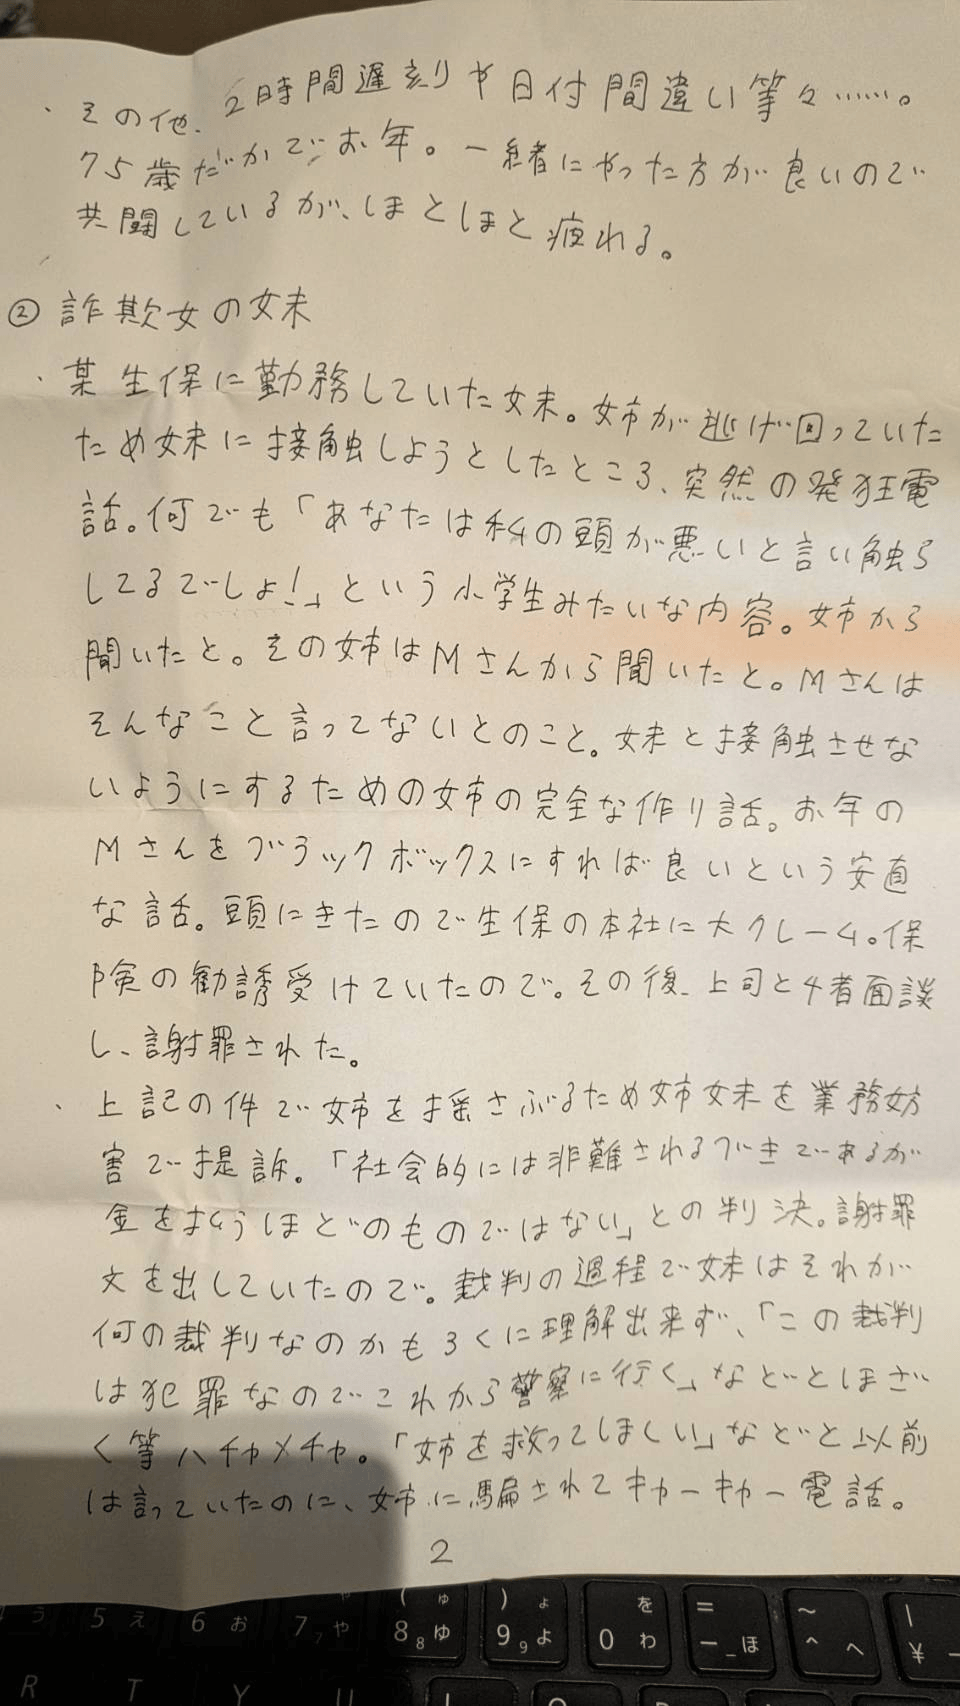 ・その他、2時間遅刻や日付間違い等々……。
75歳だかでお年。一緒にやった方が良いので
共闘しているが、ほとほと疲れる。
② 詐欺女の妹
・某生保に勤務していた妹。姉が逃げ回っていた
ため妹に接触しようとしたところ、突然の発狂電
話。何でも「あなたは私の頭が悪いと言い触ら
してるでしょ!」という小学生みたいな内容。姉から
聞いたと。その姉はMさんから聞いたと。Mさんは
そんなこと言ってないとのこと。妹と接触させな
いようにするための姉の完全な作り話。お年の
Mさんをブラックボックスにすれば良いという安直
な話。頭にきたので生保の本社に大クレーム。保
険の勧誘受けていたので。その後、上司と4者面談
し、謝罪された。
・上記の件で姉を揺さぶるため姉妹を業務妨
害で提訴。「社会的には非難されるべきであるが
金を払うほどのものではない」との判決。謝罪
文を出していたので。裁判の過程で妹はそれが
何の裁判なのかもろくに理解出来ず、「この裁判
は犯罪なのでこれから警察に行く」などとほざ
く等ハチャメチャ。「姉を救ってほしい」などと以前
は言っていたのに、姉に騙されてキャーキャー電話。
2
う 5 え 6 お 7 や ( ゅ 8 ゆ ) ょ 9 よ を 0 わ = - ほ ~ ^ へ | ¥ ー
R T Y U